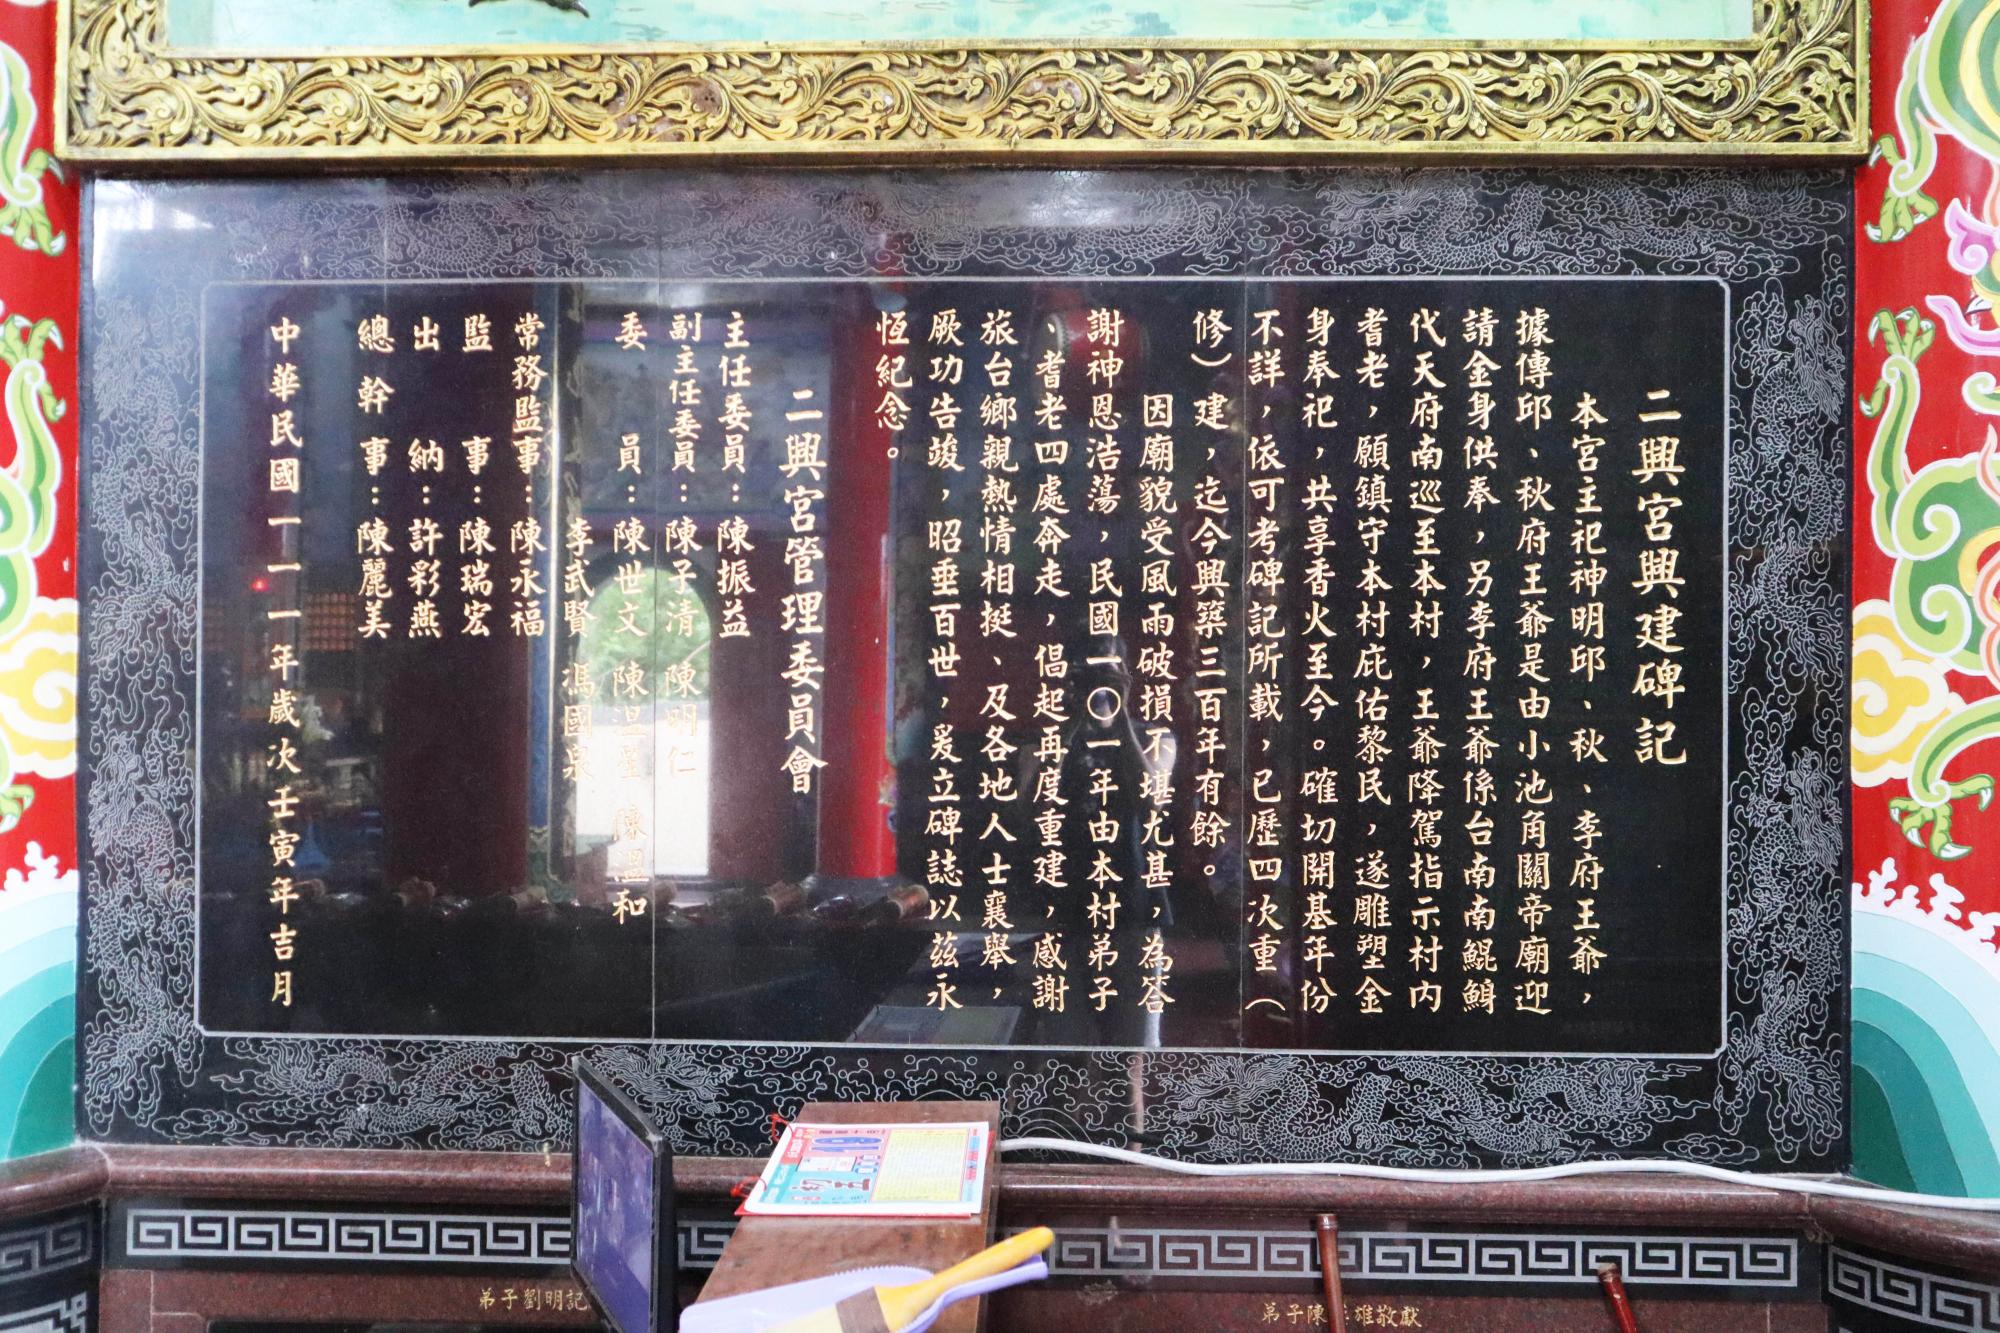 二興宮興建碑記
本宮主祀神明邱、秋、李府王爺，
據傳邱、秋府王爺是由小池角關帝廟迎
請金身供奉，另李府王爺係台南南鯤鯓
代天府南巡至本村，王爺降駕指示村內
耆老，願鎮守本村庇佑黎民，遂雕塑金
身奉祀，共享香火至今。確切開基年份
不詳，依可考碑記所載，已歷四次重（
修）建，迄今興築三百年有餘。
因廟貌受風雨破損不堪尤甚，為答
謝神恩浩蕩，民國一〇一年由本村弟子
、耆老四處奔走，倡起再度重建，感謝
旅台鄉親熱情相挺、及各地人士襄舉，
厥功告竣，昭垂百世，爰立碑誌以茲永
恆紀念。
二興宮管理委員會
主任委員：陳振益
副主任委員：陳子清 陳明仁
委員：陳世文 陳溫星 陳溫和
李武賢 馮國泉
常務監事：陳永福
監事：陳瑞宏
出納：許彩燕
總幹事：陳麗美
中華民國一一一年歲次壬寅年吉月
初五
弟子劉明記
弟子陳 雄敬獻